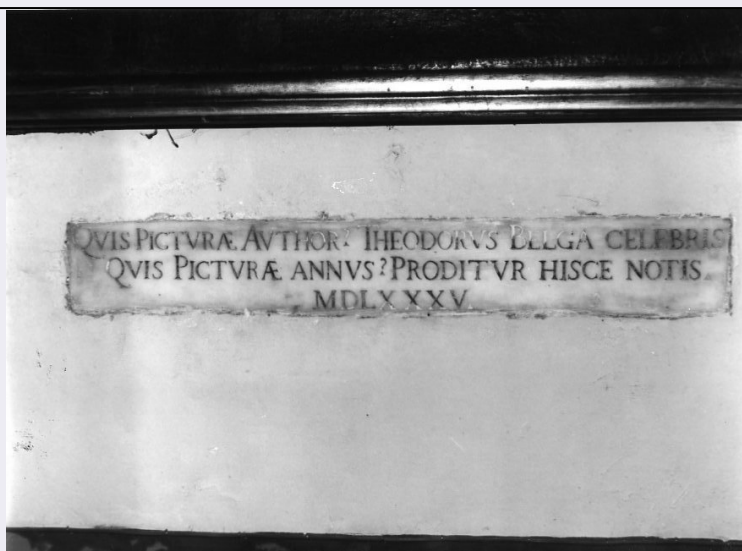 QVIS PICTVRÆ AVTHOR? THEODORVS BELGA CELEBRIS
QVIS PICTVRÆ ANNVS? PRODITVR HISCE NOTIS
MDLXXXV